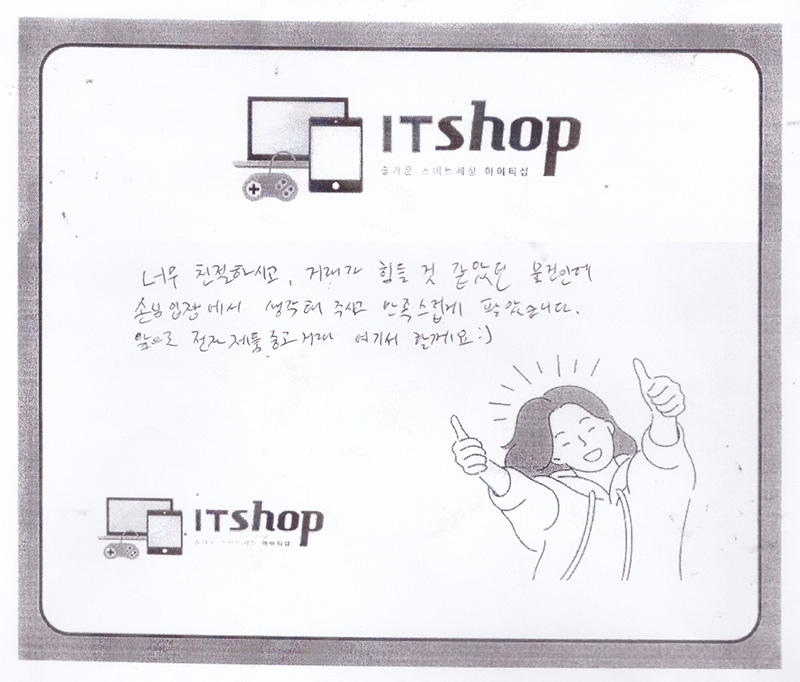 ITshop
즐거운 스마트세상 아이티샵
너무 친절하시고, 거래가 힘들 것 같았던 물건인데
손님입장에서 생각해 주시고 만족스럽게 팔았습니다.
앞으로 전자제품 중고거래 여기서 할게요 :)
ITshop
즐거운 스마트세상 아이티샵